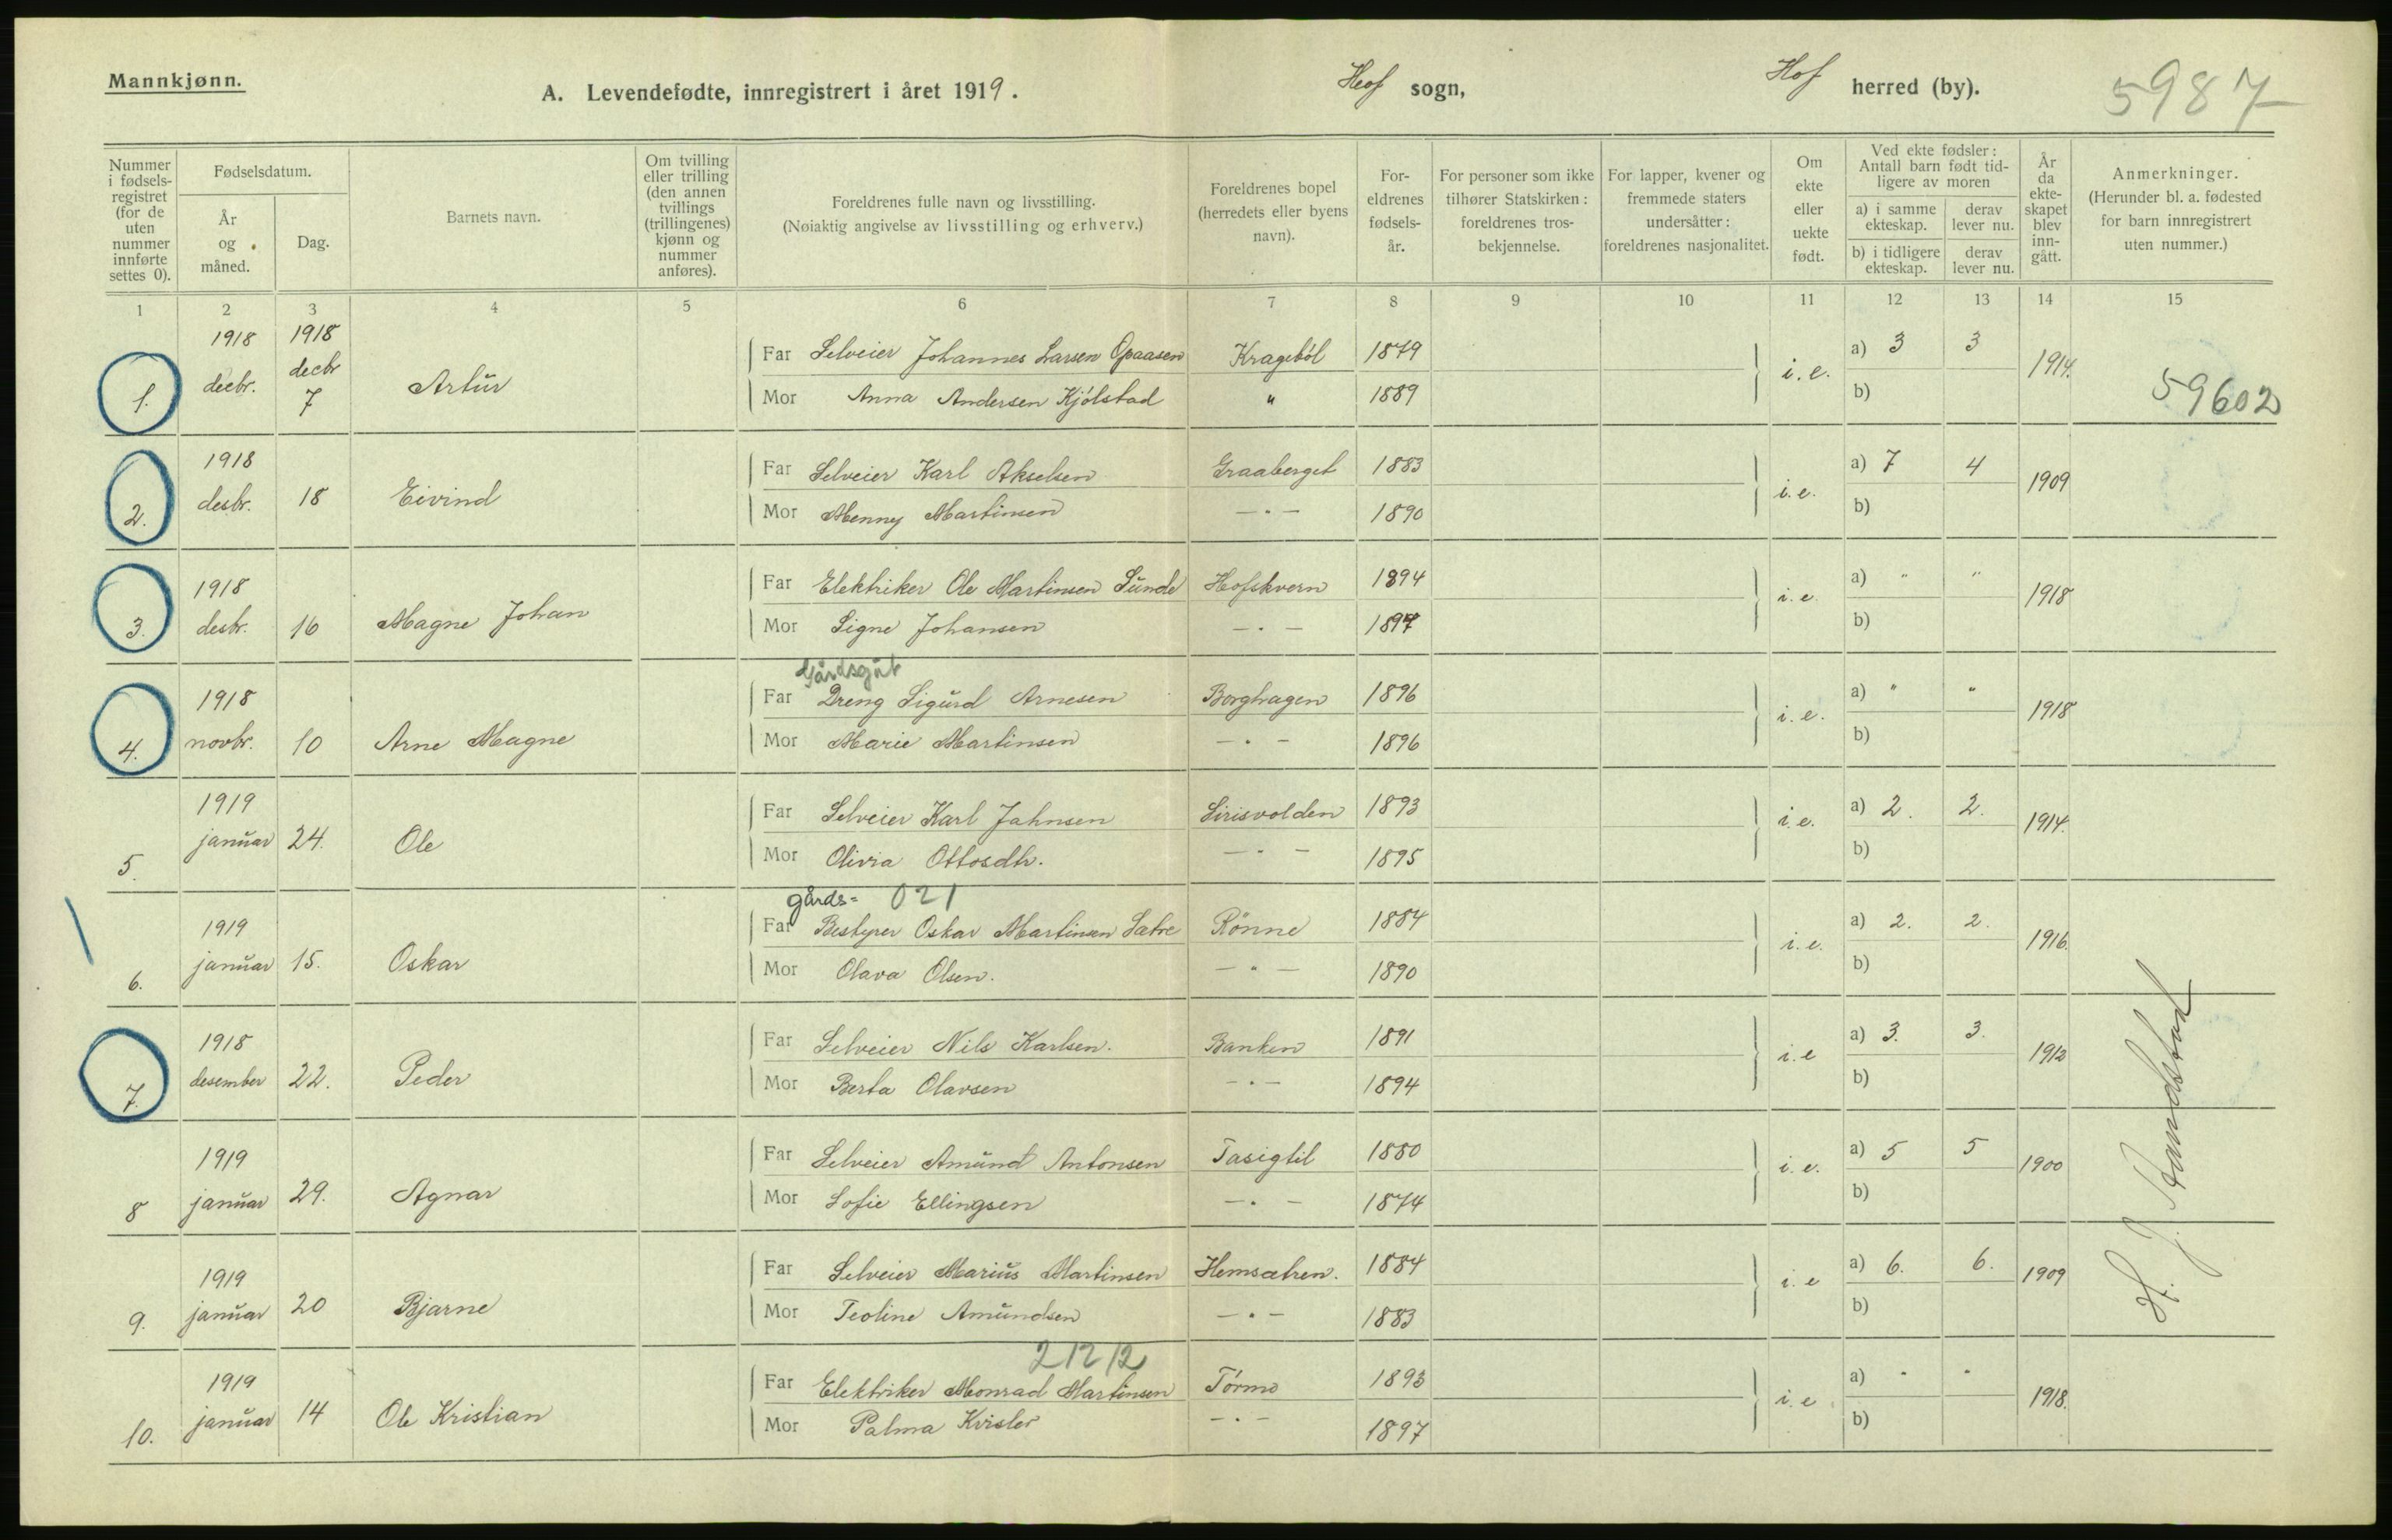 Mannkjønn.
A. Levendefødte, innregistrert i året 1919.
Hof sogn,
Hof herred (by).
5987
Nummer i fødsels-registret (for de uten nummer innførte settes 0).
Fødselsdatum.
År og måned.
Dag.
Barnets navn.
Om tvilling eller trilling (den annen tvillings (trillingenes) kjønn og nummer anføres).
Foreldrenes fulle navn og livsstilling.
(Nøiaktig angivelse av livsstilling og erhverv.)
Foreldrenes bopel (herredets eller byens navn).
For-eldrenes fødsels-år.
For personer som ikke tilhører Statskirken: foreldrenes tros-bekjennelse.
For lapper, kvener og fremmede staters undersåtter: foreldrenes nasjonalitet.
Om ekte eller uekte født.
Ved ekte fødsler: Antall barn født tid-ligere av moren
a) i samme ekteskap.
derav lever nu.
b) i tidligere ekteskap.
derav lever nu.
År da ekte-skapet blev inn-gått.
Anmerkninger.
(Herunder bl. a. fødested for barn innregistrert uten nummer.)
1 2 3 4 5 6 7 8 9 10 11 12 13 14 15
1. 1918 decbr. 1918 decbr 7 Artur
Far Selveier Johannes Larsen Opaasen Kragebøl 1879 i. e. a) 3 3 1914. 59602
Mor Anna Andersen Kjølstad " 1889 b)
2. 1918 desbr. 18 Eivind
Far Selveier Karl Akselsen Graaberget 1883 i. e. a) 7 4 1909
Mor Menny Martinsen — " — 1890 b)
3. 1918 desbr. 16 Magne Johan
Far Elektriker Ole Martinsen Sunde Hofskvern 1894 i. e. a) " " 1918
Mor Signe Johansen — " — 1897 b)
Gårdsgut
4. 1918 novbr. 10 Arne Magne
Far Dreng Sigurd Arnesen Borghagen 1896 i. e. a) " " 1918
Mor Marie Martinsen — " — 1896 b)
5. 1919 januar 24. Ole
Far Selveier Karl Jahnsen Sirisvolden 1893 i. e. a) 2. 2. 1914.
Mor Olivia Ottosdtr. — " — 1895 b)
gårds= 021
6. 1919 januar 15. Oskar
Far Bestyrer Oskar Martinsen Sætre Rønne 1884 i. e. a) 2. 2. 1916.
Mor Olava Olsen. — " — 1890 b)
7. 1918 desember 22. Peder
Far Selveier Nils Karlsen. Banken 1891 i. e a) 3. 3. 1912
Mor Berta Olavsen — " — 1894 b)
8 1919 januar 29. Agnar
Far Selveier Amund Antonsen Tasigtil 1880 i. e. a) 5 5 1900
Mor Sofie Ellingsen — " — 1874 b)
9. 1919 januar 20 Bjarne
Far Selveier Marius Martinsen Hemsætren. 1884 i. e a) 6. 6. 1909
Mor Teoline Amundsen — " — 1883 b)
21212
10. 1919 januar 14 Ole Kristian
Far Elektriker Monrad Martinsen Tørmo 1893 i. e a) " " 1918.
Mor Palma Kvisler — " — 1897 b)